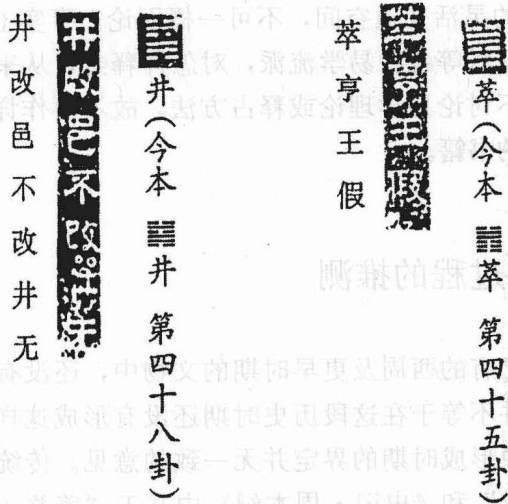 ䷬萃(今本 ䷬萃 第四十五卦)
萃亨王假
萃亨王假
䷯井(今本 ䷯井 第四十八卦)
井改邑不改井无
井改邑不改井无